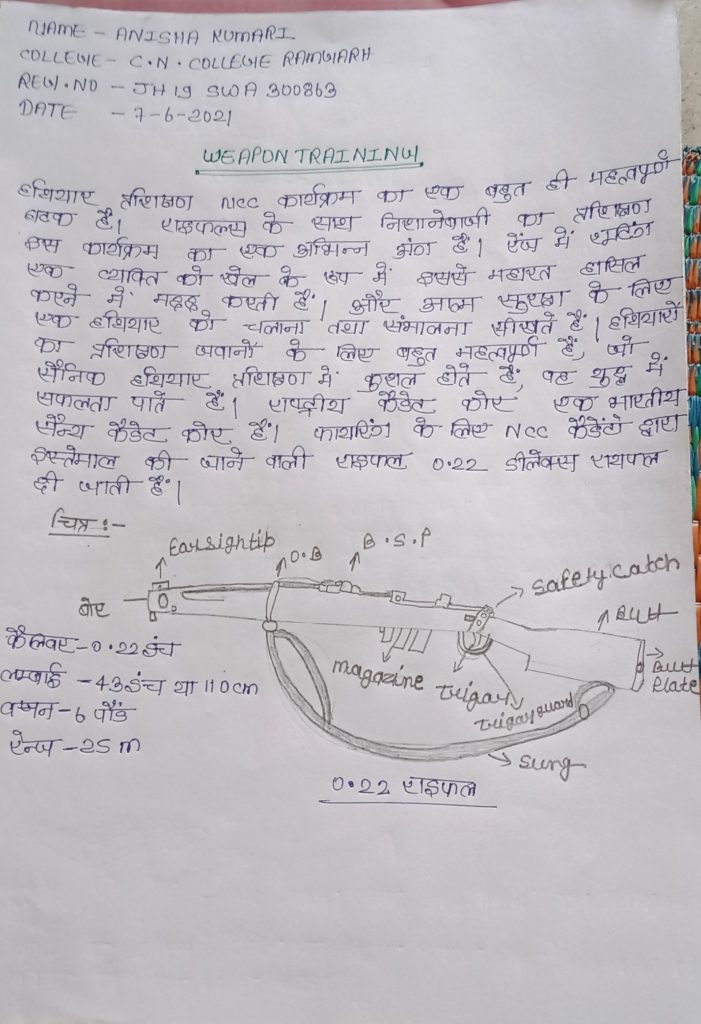 NAME - ANISHA KUMARI
COLLEGE - C.N. COLLEGE RAMGARH
REG.NO - JH 19 SWA 300863
DATE - 7-6-2021
WEAPON TRAINING
हथियार प्रशिक्षण NCC कार्यक्रम का एक बहुत ही महत्वपूर्ण
घटक है। राइफल्स के साथ निशानेबाजी का प्रशिक्षण
इस कार्यक्रम का एक अभिन्न अंग है। रेंज में शूटिंग
एक व्यक्ति को खेल के रूप में इससे महारत हासिल
करने में मदद करती हैं। और आत्म सुरक्षा के लिए
एक हथियार को चलाना तथा संभालना सीखते हैं। हथियारों
का प्रशिक्षण जवानों के लिए बहुत महत्वपूर्ण हैं, जो
सैनिक हथियार प्रशिक्षण में कुशल होते हैं, वह युद्ध में
सफलता पाते हैं। राष्ट्रीय कैडेट कोर एक भारतीय
सैन्य कैडेट कोर हैं। फायरिंग के लिए NCC कैडेटों द्वारा
इस्तेमाल की जाने वाली राइफल 0.22 डीलेक्स रायफल
दी जाती हैं।
चित्र :-
Earsightip
O.B
B.S.P
Safety catch
बोर
Butt
Butt Plate
magazine
trigar
trigar guard
Sung
कैलिबर - 0.22 इंच
लम्बाई - 43 इंच या 110 cm
वजन - 6 पौंड
रेन्ज - 25 m
0.22 राइफल